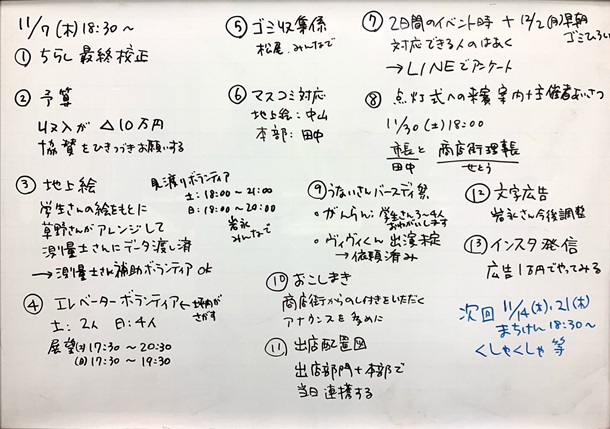 11/7(木)18:30～
① ちらし 最終校正
② 予算
収入が △10万円
協賛をひきつづきお願いする
③ 地上絵
学生さんの絵をもとに
草野さんがアレンジして
測量士さんにデータ渡し済
→測量士さん補助ボランティア ok
見渡りボランティア
土:18:00～21:00
日:18:00～20:00
岩永
みんなで
④ エレベーターボランティア←坪内が
さがす
土:2人 日:4人
展望(土)17:30～20:30
(日)17:30～19:30
⑤ ゴミ収集係
松尾、みんなで
⑥ マスコミ対応
地上絵:中山
本部:田中
⑦ 2日間のイベント時 + 12/2(月)早朝
ゴミひろい
対応できる人のはあく
→LINEでアンケート
⑧ 点灯式への来賓案内+主催者あいさつ
11/30(土)18:00
市長と 商店街理事長
田中 せとう
⑨ うないさんバースディ祭
・がんらん:学生さん3～4人
おねがいします
・ヴィヴィくん 出演未定
→依頼済み
⑩ おこしまき
商店街からのし付きをいただく
アナウンスを多めに
⑪ 出店配置図
出店部門+本部で
当日連携する
⑫ 文字広告
岩永さん今後調整
⑬ インスタ発信
広告1万円でやってみる
次回 11/14(木),21(木)
まちけん 18:30～
くしゃくしゃ 等